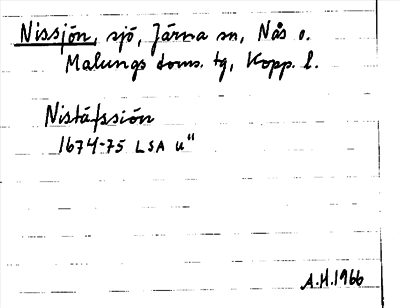 Nissjön, sjö, Järna sn, Nås o.
Malungs doms. tg, Kopp. l.
Nistáfssión
1674-75 LSA u"
A.H.1966